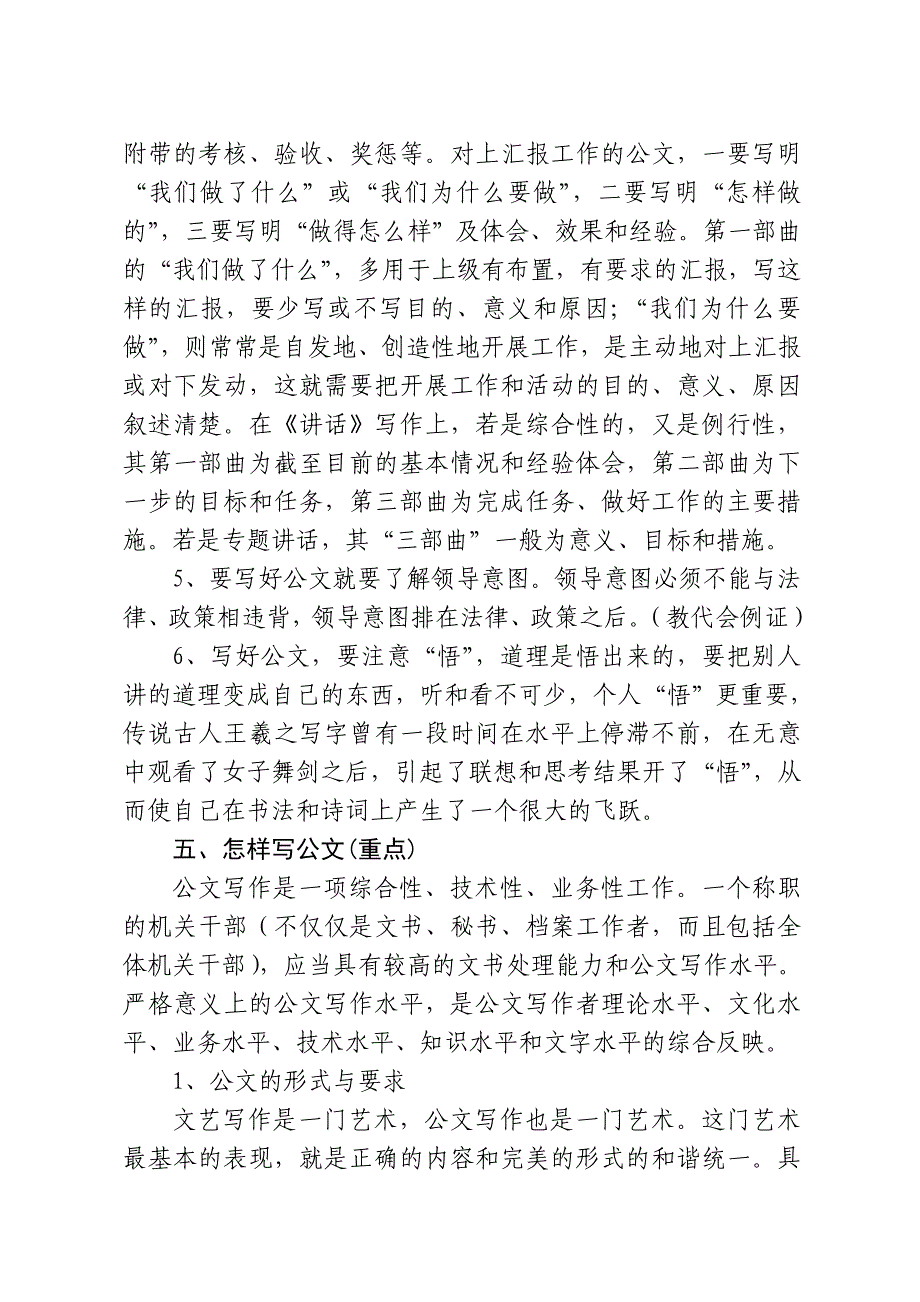 附带的考核、验收、奖惩等。对上汇报工作的公文，一要写明
“我们做了什么”或“我们为什么要做”，二要写明“怎样做
的”，三要写明“做得怎么样”及体会、效果和经验。第一部曲
的“我们做了什么”，多用于上级有布置，有要求的汇报，写这
样的汇报，要少写或不写目的、意义和原因；“我们为什么要
做”，则常常是自发地、创造性地开展工作，是主动地对上汇报
或对下发动，这就需要把开展工作和活动的目的、意义、原因
叙述清楚。在《讲话》写作上，若是综合性的，又是例行性，
其第一部曲为截至目前的基本情况和经验体会，第二部曲为下
一步的目标和任务，第三部曲为完成任务、做好工作的主要措
施。若是专题讲话，其“三部曲”一般为意义、目标和措施。
5、要写好公文就要了解领导意图。领导意图必须不能与法
律、政策相违背，领导意图排在法律、政策之后。(教代会例证)
6、写好公文，要注意“悟”，道理是悟出来的，要把别人
讲的道理变成自己的东西，听和看不可少，个人“悟”更重要，
传说古人王羲之写字曾有一段时间在水平上停滞不前，在无意
中观看了女子舞剑之后，引起了联想和思考结果开了“悟”，从
而使自己在书法和诗词上产生了一个很大的飞跃。
五、怎样写公文(重点)
公文写作是一项综合性、技术性、业务性工作。一个称职
的机关干部(不仅仅是文书、秘书、档案工作者，而且包括全
体机关干部)，应当具有较高的文书处理能力和公文写作水平。
严格意义上的公文写作水平，是公文写作者理论水平、文化水
平、业务水平、技术水平、知识水平和文字水平的综合反映。
1、公文的形式与要求
文艺写作是一门艺术，公文写作也是一门艺术。这门艺术
最基本的表现，就是正确的内容和完美的形式的和谐统一。具